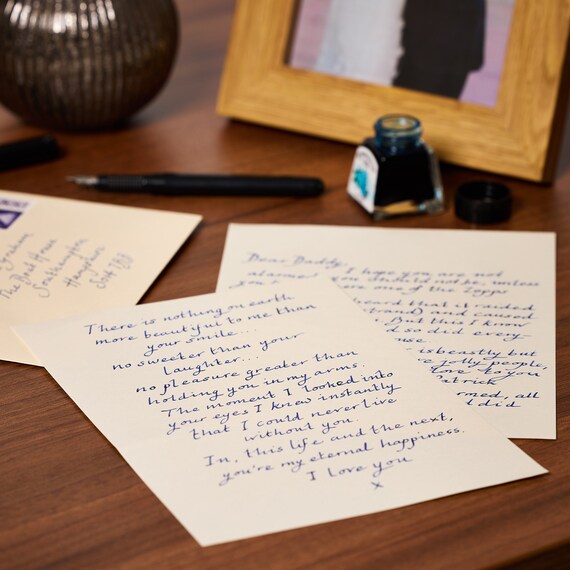 Graham
The Boat House
Southampton
Hampshire
Dear Daddy,
I hope you are not
alarmed
you should not be, unless
were one of the Zepps
heard that it raided
Strand) and caused
But this I know
d so did every-
use
is beastly but
people,
love to you
Patrick
rmed, all
I did
There is nothing on earth
more beautiful to me than
your smile...
no sweeter than your
laughter...
no pleasure greater than
holding you in my arms.
The moment I looked into
your eyes I knew instantly
that I could never live
without you.
In, this life and the next,
you're my eternal happiness.
I love you
x